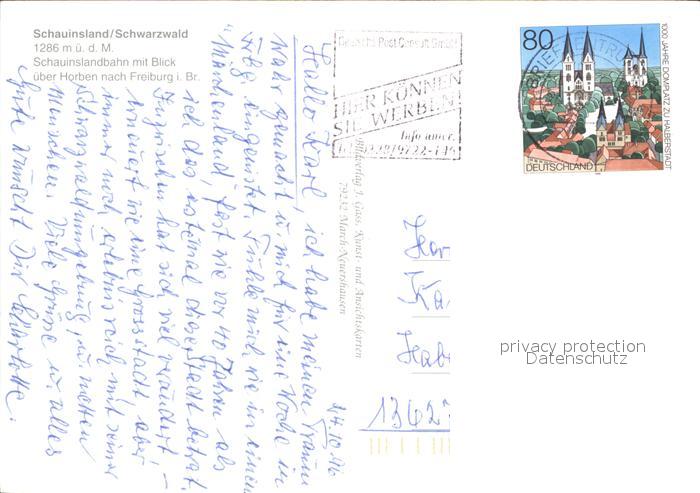 Schauinsland/Schwarzwald
1286 m ü. d. M.
Schauinslandbahn mit Blick
über Horben nach Freiburg i. Br.
Deutsche Post Consult GmbH
HIER KÖNNEN
SIE WERBEN!
Info unter:
80
DEUTSCHLAND
1000 JAHRE DOMPLATZ ZU HALBERSTADT
Bildverlag J. Gass, Kunst- und Ansichtskarten
79232 March-Neuershausen
Hallo Karl, ich habe meinen Traum
wahr gemacht u. mich für eine Woche in
Frbg. einquartiert. Fühle mich wie in einem
"Märchenland", fast wie vor 40 Jahren als
ich das erstemal diese Stadt betrat.
Inzwischen hat sich viel verändert, –
wie eine Grossstadt aber
immer noch erlebnisreich mit seiner
Schwarzwaldumgebung u. netten
Menschen. Viele Grüsse u. alles
Gute wünscht Dir
Her
Ka
Hab
1362
privacy protection
Datenschutz